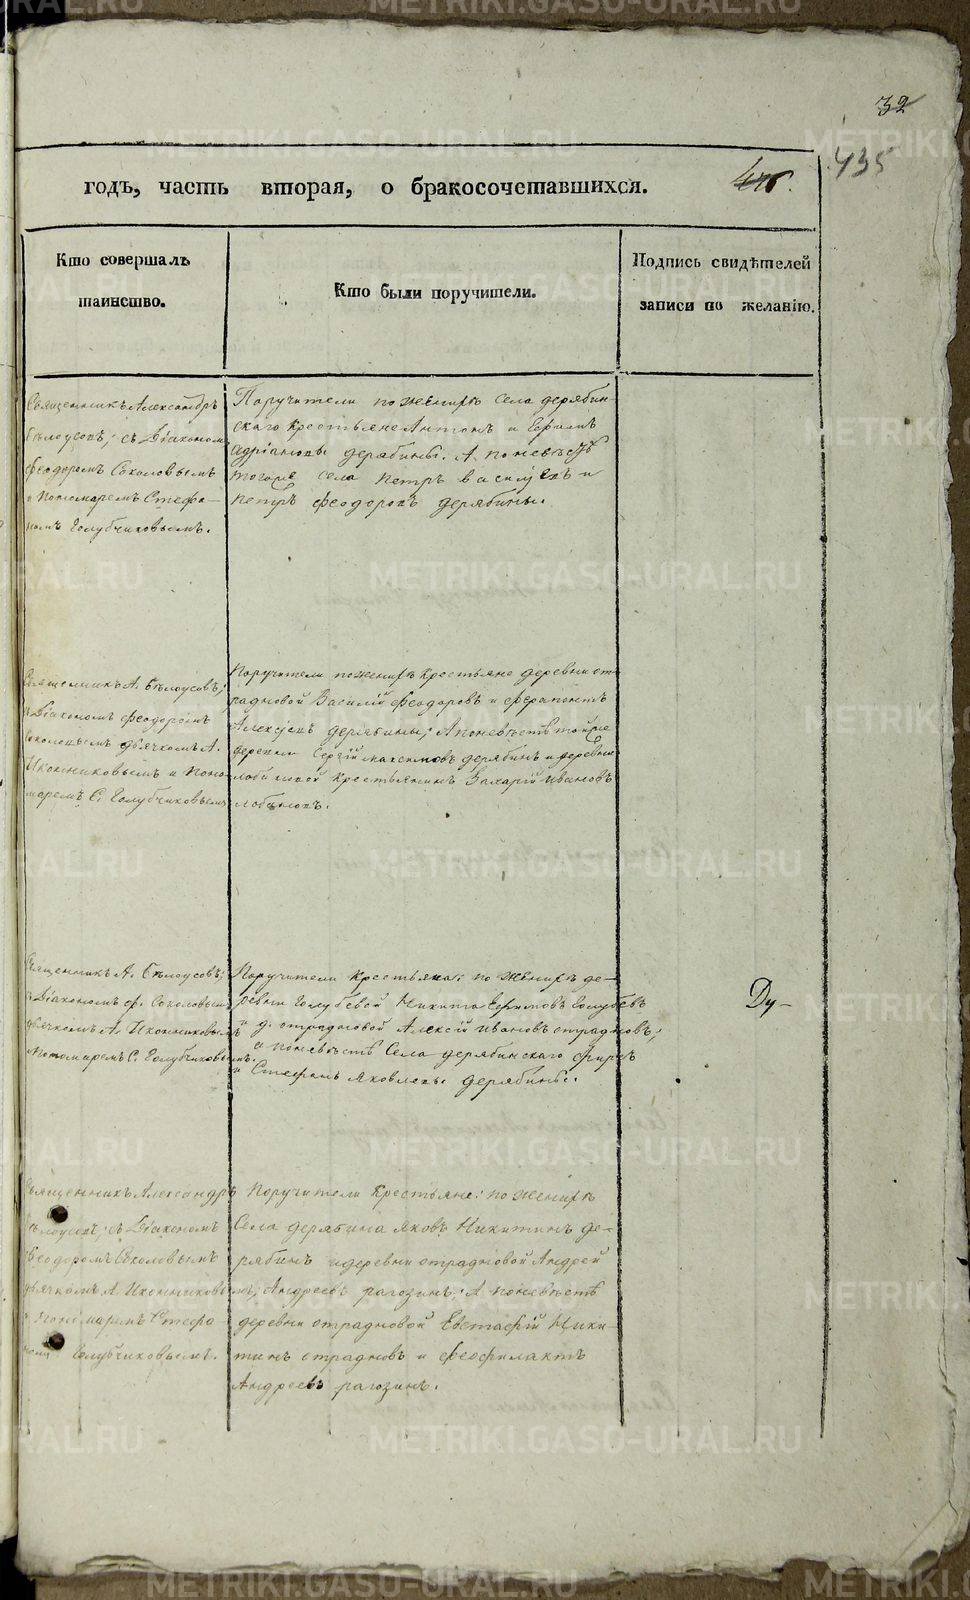 32
435
годъ, часть вторая, о бракосочетавшихся.
Кто совершалъ
таинство.
Кто были поручители.
Подпись свидѣтелей
записи по желанію.
Священникъ Александръ
Бѣлоусовъ, съ Діакономъ
Феодоромъ Соколовымъ
и Пономаремъ Стефа-
номъ Голубчиковымъ.
Поручители по женихѣ села дерябин-
скаго крестьяне Антонъ и Ефимъ
Адріановы дерябины. А по невѣстѣ
тогоже села Петръ Васильевъ и
Петръ Феодоровъ дерябины.
Священникъ А. Бѣлоусовъ,
съ Діакономъ Феодоромъ
Соколовымъ дьячкомъ А.
Иконниковымъ и Поно-
маремъ С. Голубчиковымъ
Поручители по женихѣ крестьяне деревни от-
радновой Василій Феодоровъ и Ферапонтъ
Алексѣевъ дерябины; А по невѣстѣ тойже
деревни Сергій Максимовъ дерябинъ и деревни
лобановой крестьянинъ Захарій Ивановъ
лобановъ.
Священникъ А. Бѣлоусовъ;
съ Діакономъ Ф. Соколовымъ
дьячкомъ А. Иконниковымъ
и Пономаремъ С. Голубчиковымъ.
Поручители Крестьяна: по женихѣ де-
ревни Голубевой Никита Ефимовъ Голубевъ
и д. отрадновой Алексій Ивановъ отрадновъ;
а по невѣстѣ Села дерябинскаго
и Стефанъ Яковлевы дерябины.
Ду-
Священникъ Александръ
Бѣлоусовъ, съ Діакономъ
Феодоромъ Соколовымъ
дьячкомъ А. Иконниковы-
и Пономаремъ Стефа-
номъ Голубчиковымъ.
Поручители Крестьяне: по женихѣ
Села дерябина Яковъ Никитинъ де-
рябинъ и деревни отрадновой Андрей
Андреевъ рагозинъ. А по невѣстѣ
деревни отрадновой Евстафій Ники-
тинъ отрадновъ и Феофилактъ
Андреевъ рагозинъ.
METRIKI.GASO-URAL.RU